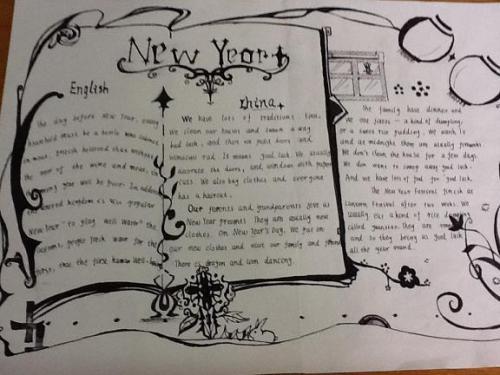 New Year
English
the day before New Year, every
household must be a bottle
in meat.
the
coming year will be poor. In addition
the united kingdom is also popular
New Year "to play well water" the
customs, people fetch water for the
first, that the first human well-being
China
We have lots of traditions, too.
We clean our houses and sweep away
bad luck, and then we paint doors and
windows red. It means good luck. We usually
decorate the doors, and windows with paper
cuts. We also buy clothes and everyone
has a haircut.
Our parents and grandparents give us
New Year presents. They are usually new
clothes. On New Year's Day, We put on
our new clothes and visit our family and
There is dragon and lion dancing.
The family have dinner and
We one jiaozi - a kind of dumpling,
or a sweet rice pudding. We watch TV
and at midnight there are usually fireworks
We don't clean the house for a few days.
We don want to sweep away good luck.
And we have lots of food for good luck.
The New Year Festival finish at
Lantern Festival after two weeks. We
usually eat a kind of rice
called yuanxiao. They are
and so they bring us good luck
all the year round.